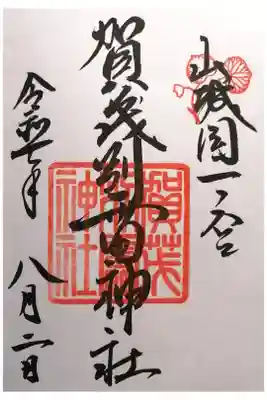 山城国一ノ宮
賀茂別雷神社
令和七年 八月二日
賀茂
神社